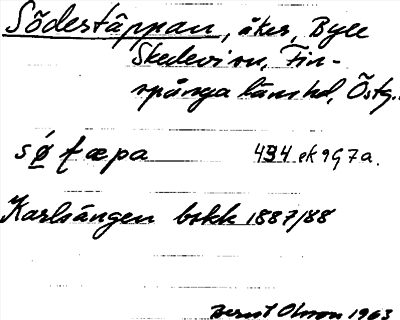 Södestäppan, åker, Byle
Skedevi sn, Fin-
spånga länshd, Östg.
sø̀tæpa 4394 ek 9G7a.
Karlsängen bskk 1887/88
Bernt Olsson 1963